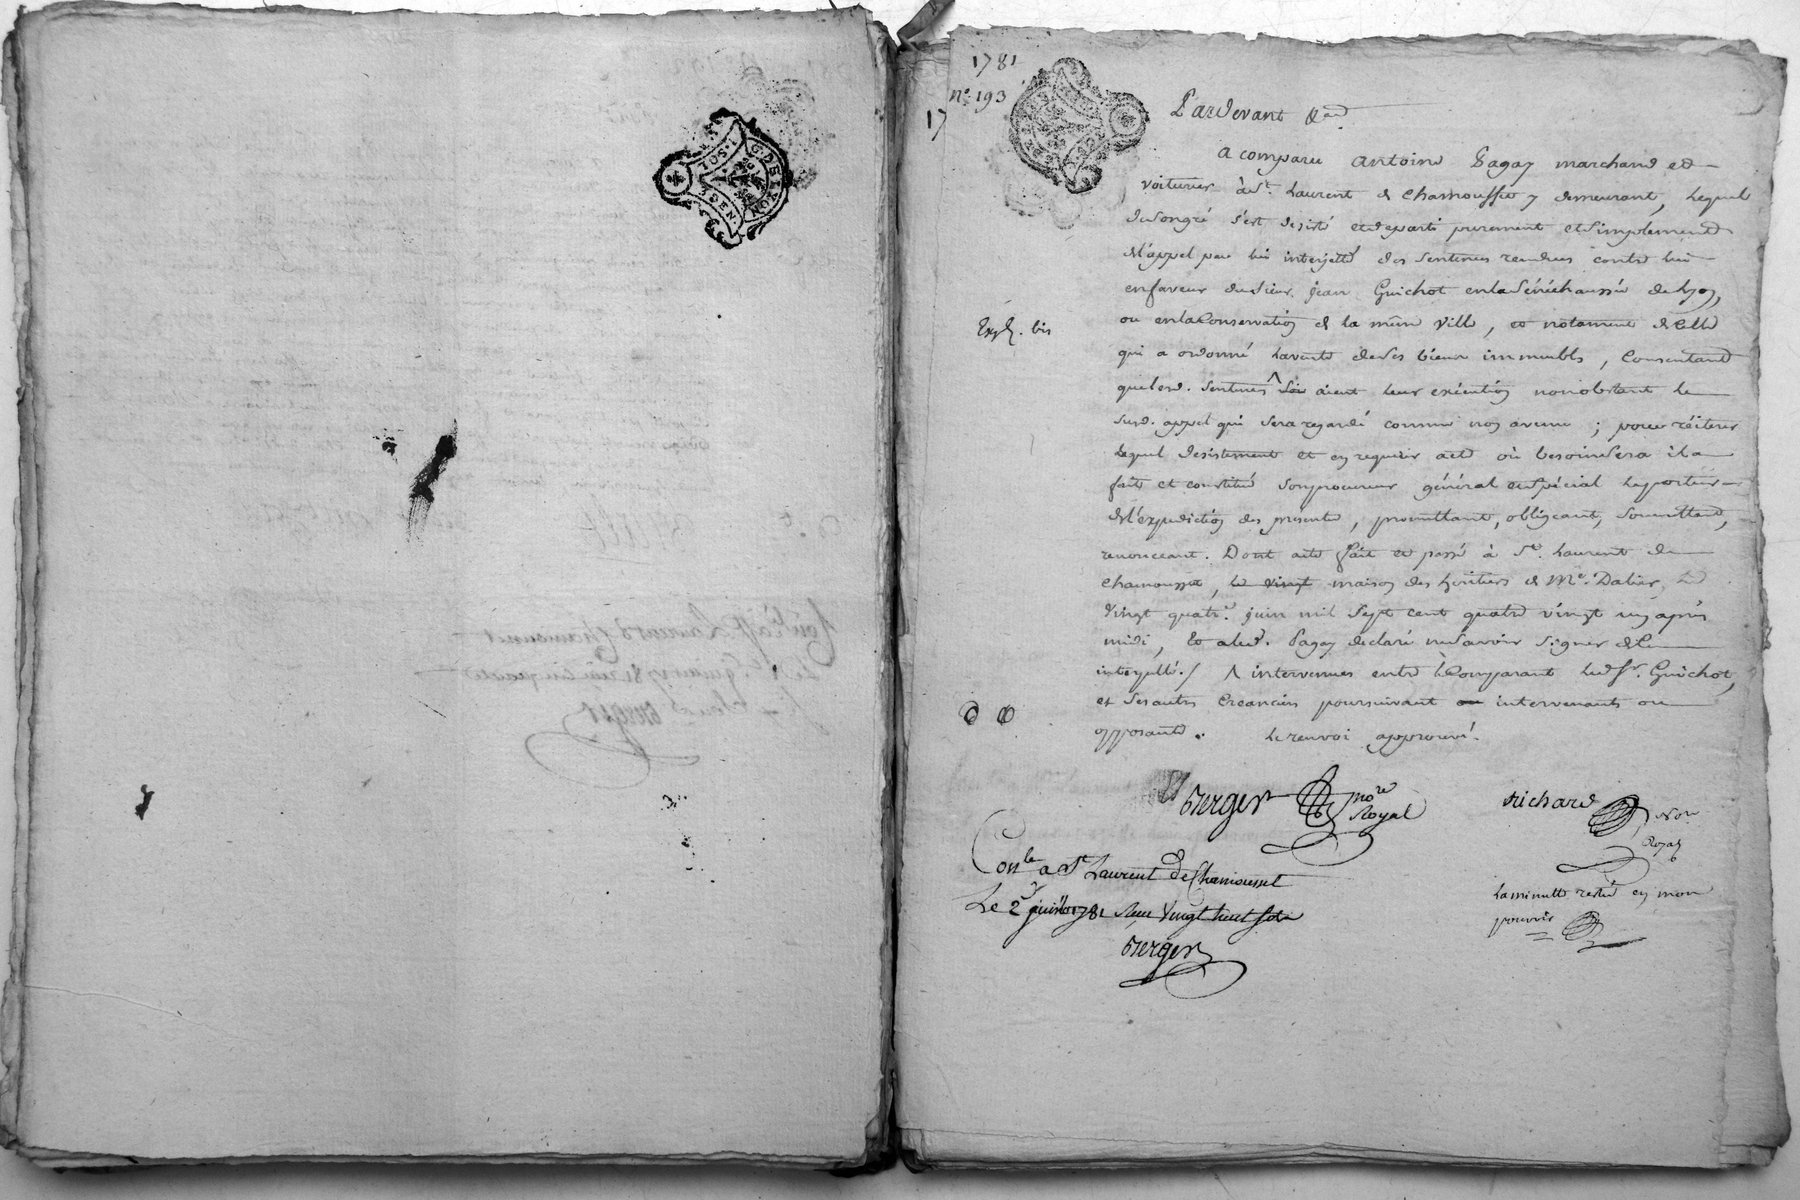 G. DE LYON
1. SOL
DEN
1781
nº. 193
17
Pardevant &c.
a comparu antoine Pagay marchand et
voiturier à St. Laurent de Chamousset y demeurant, lequel
de son gré s'est desisté et departi purement et simplement
de l'appel par lui interjetté des sentences rendues contre lui
en faveur du sieur jean Guichot en la Sénéchaussée de Lyon,
ou en la Conservation de la même Ville, et notament de celle
Exp. bis
qui a ordonné la vente de ses bieux immeubls, Consentant
que lesd. sentences ^ aient leur exécution nonobstant le
susd. appel qui sera regardé comme non avenu ; pour réiterer
lequel desistement et en requerir acte où besoin sera il a
fait et constitué son procureur général et spécial le porteur
de l'expedition des presente, promettant, obligeant, soumettant,
renonceant. Dont acte fait et passé à St. Laurent de
Chamousset, le vingt maison des héritiers de Me. Dalier, le
vingt quatre juin mil sept cent quatre vingt un après
midi, et a led. Pagay declaré ne savoir signer de ce
interpellé./ ^ intervenues entre le Comparant led. Sr. Guichot,
et ses autres Creanciers poursuivant ou intervenants ou
opposants. le renvoi approuvé.
Berger nore Royal
Richard Nore Royal
Conlé a St Laurent de Chamousset
Le 2 juillet 1781 Reçu Vingt huit sols
Berger
la minutte restée en mon
pouvoir